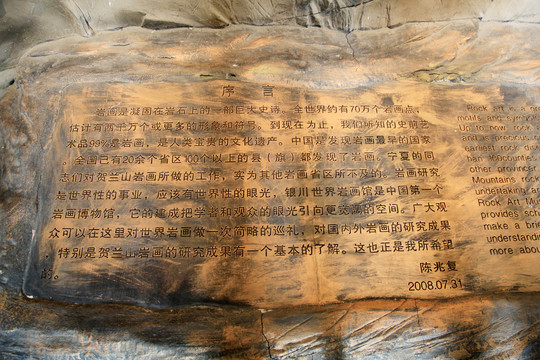 序 言
岩画是凝固在岩石上的一部巨大史诗。全世界约有70万个岩画点，
估计有两千万个或更多的形象和符号。到现在为止，我们所知的史前艺
术品99%是岩画，是人类宝贵的文化遗产。中国是发现岩画最早的国家
。全国已有20余个省区100个以上的县（旗）都发现了岩画。宁夏的同
志们对贺兰山岩画所做的工作，实为其他岩画省区所不及的。岩画研究
是世界性的事业，应该有世界性的眼光，银川世界岩画馆是中国第一个
岩画博物馆，它的建成把学者和观众的眼光引向更宽满的空间。广大观
众可以在这里对世界岩画做一次简略的巡礼，对国内外岩画的研究成果
，特别是贺兰山岩画的研究成果有一个基本的了解。这也正是我所希望
的。
陈兆复
2008.07.31
Rock Art is a
motifs and sym
Up to now, rock
and are precious
earliest
than 150 counties
other provinc
Mountains Rock
undertaking a
Rock Art Mus
provides sch
make a brie
understandin
more abou